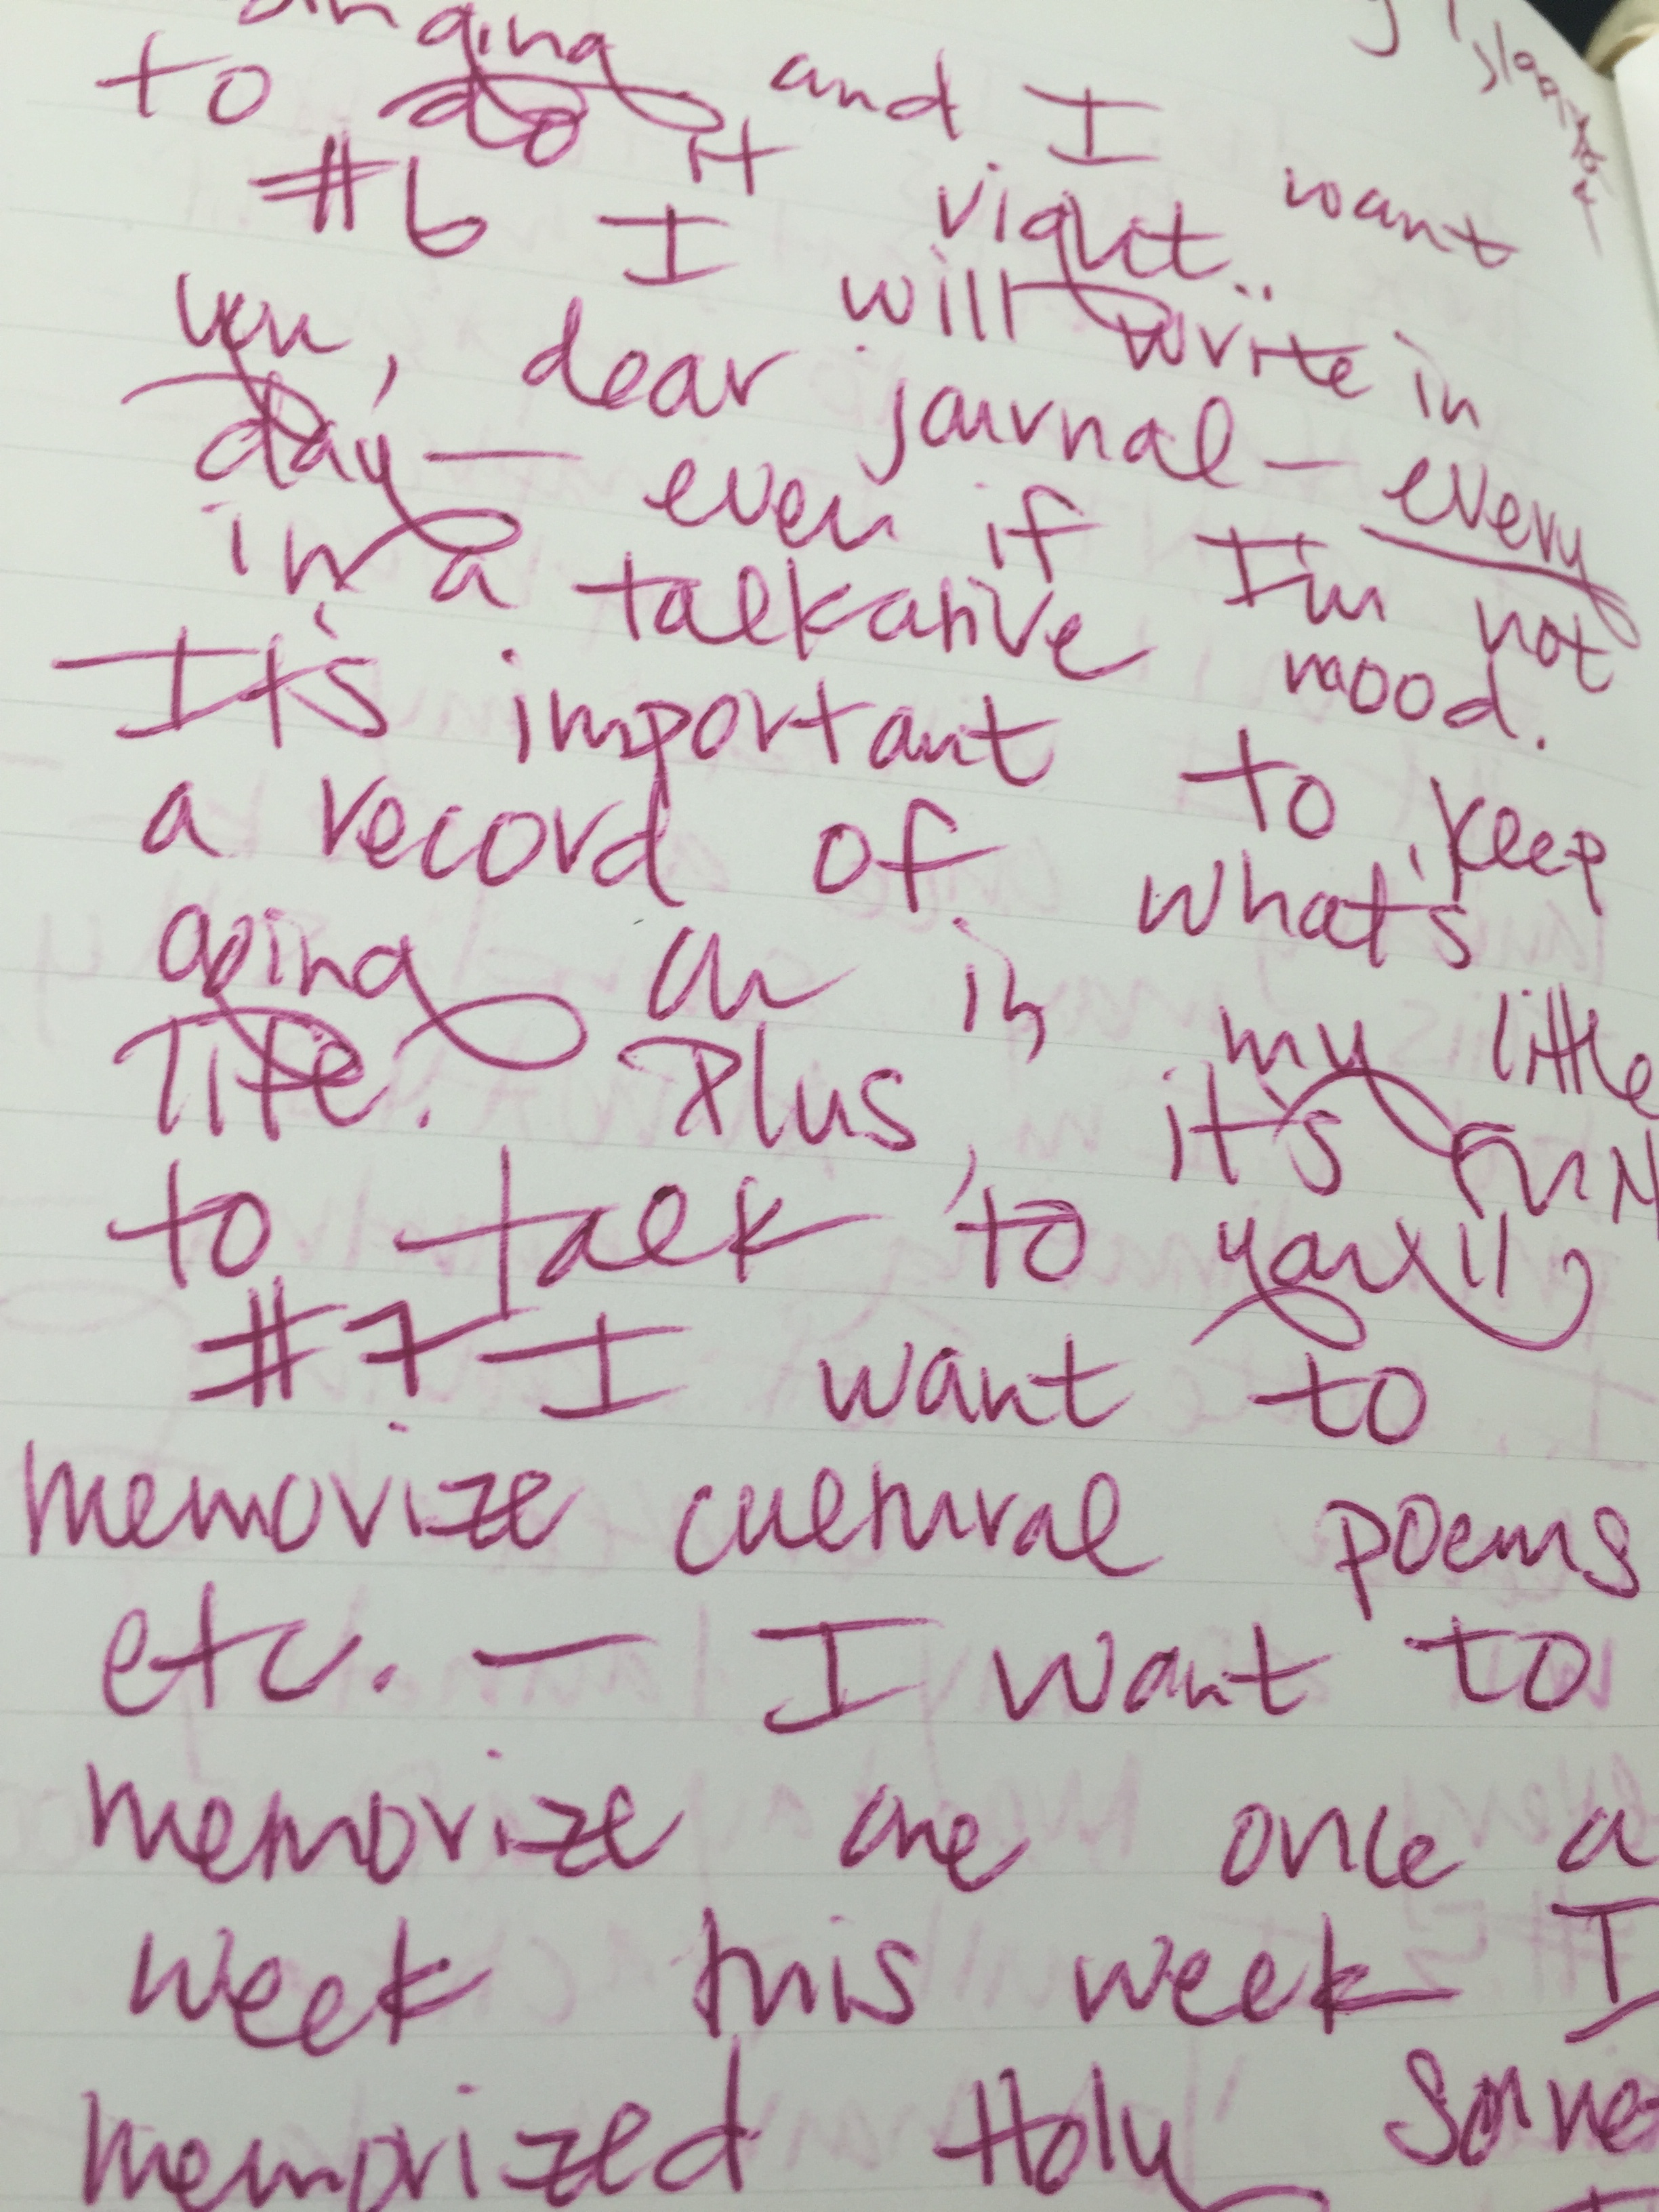 and I want
to do it right..
#6 I will write in
you, dear journal — every
day — even if I'm not
in a talkative mood.
It's important to keep
a record of what's
going on in my little
life. Plus, it's FUN
to talk to you!!
#7 I want to
memorize cultural poems
etc. — I want to
memorize one once a
week this week I
memorized Holy Sonne